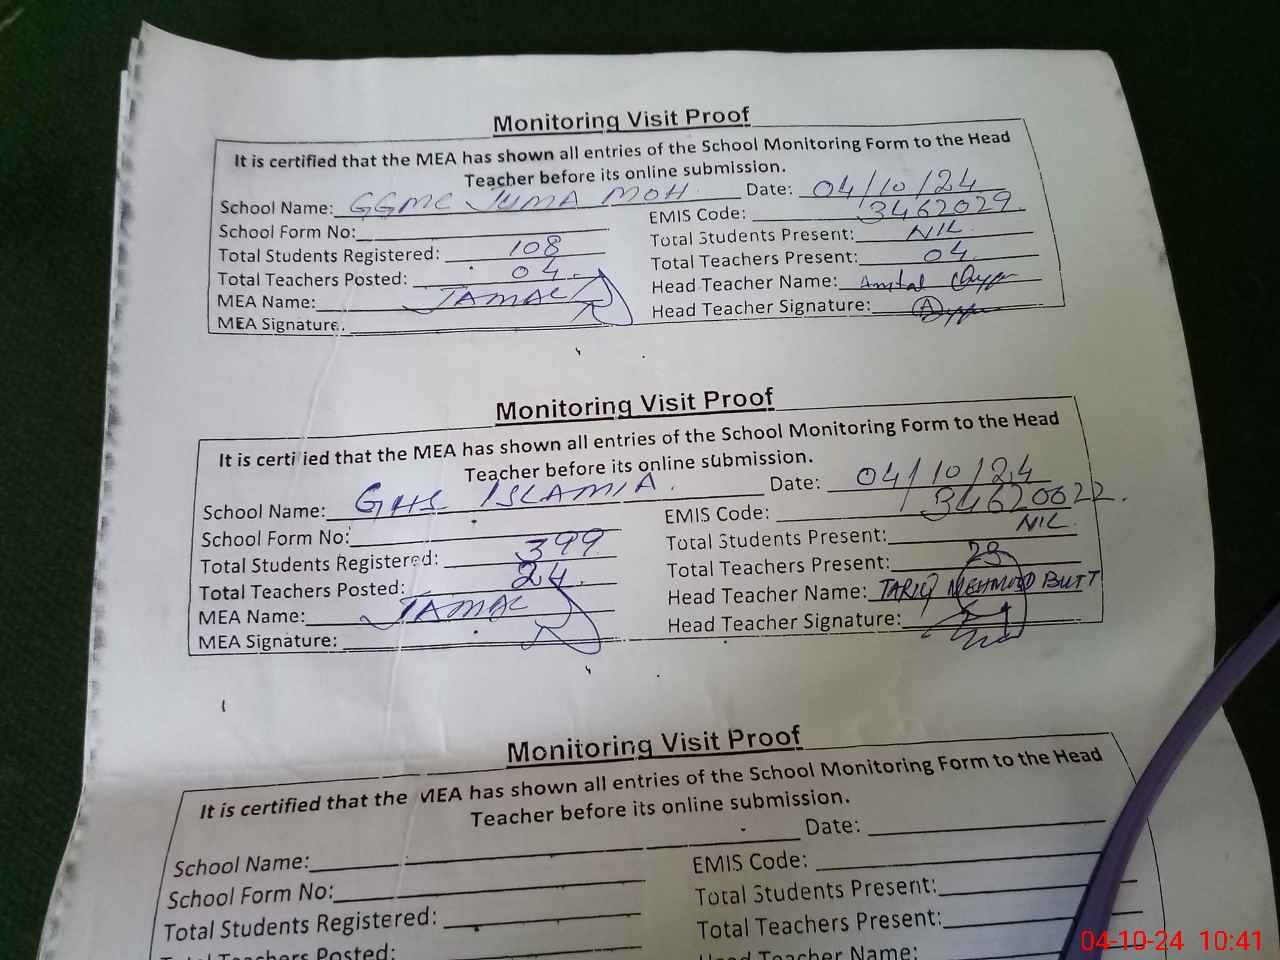 Monitoring Visit Proof
It is certified that the MEA has shown all entries of the School Monitoring Form to the Head
Teacher before its online submission.
School Name: GGMC JUMA MOH Date: 04/10/24
EMIS Code: 3462029
School Form No:
Total Students Present: NIL
Total Students Registered: 108
Total Teachers Present: 04
Total Teachers Posted: 04
Head Teacher Name:
MEA Name: JAMAL
Head Teacher Signature:
MEA Signature:
Monitoring Visit Proof
It is certified that the MEA has shown all entries of the School Monitoring Form to the Head
Teacher before its online submission.
School Name: GHS ISLAMIA. Date: 04/10/24
EMIS Code:
School Form No:
Total Students Present: NIL
Total Students Registered: 399
Total Teachers Present: 23
Total Teachers Posted: 24
Head Teacher Name: TARIQ MEHMOOD BUTT
MEA Name: JAMAL
Head Teacher Signature:
MEA Signature:
Monitoring Visit Proof
It is certified that the MEA has shown all entries of the School Monitoring Form to the Head
Teacher before its online submission.
School Name: Date:
EMIS Code:
School Form No:
Total Students Present:
Total Students Registered:
Total Teachers Present:
Total Teachers Posted:
Head Teacher Name:
04-10-24 10:41